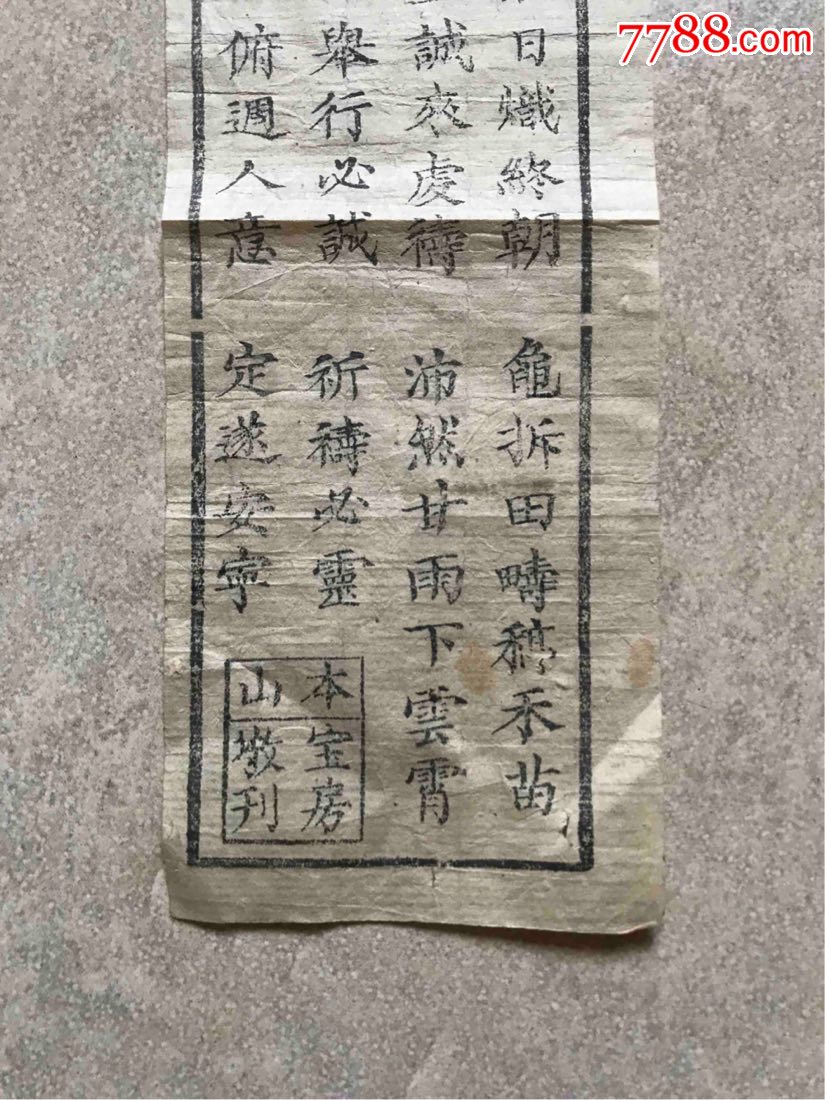 7788.com
日熾終朝
龜拆田疇稿禾苗
誠來虔禱
沛然甘雨下雲霄
舉行必誠
祈禱必靈
俯週人意
定遂安寧
本山
宝房墩刊